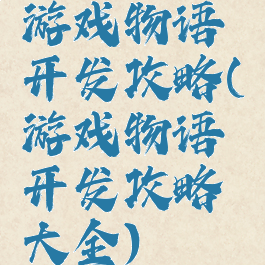 游戏物语
开发攻略(
游戏物语
开发攻略
大全)